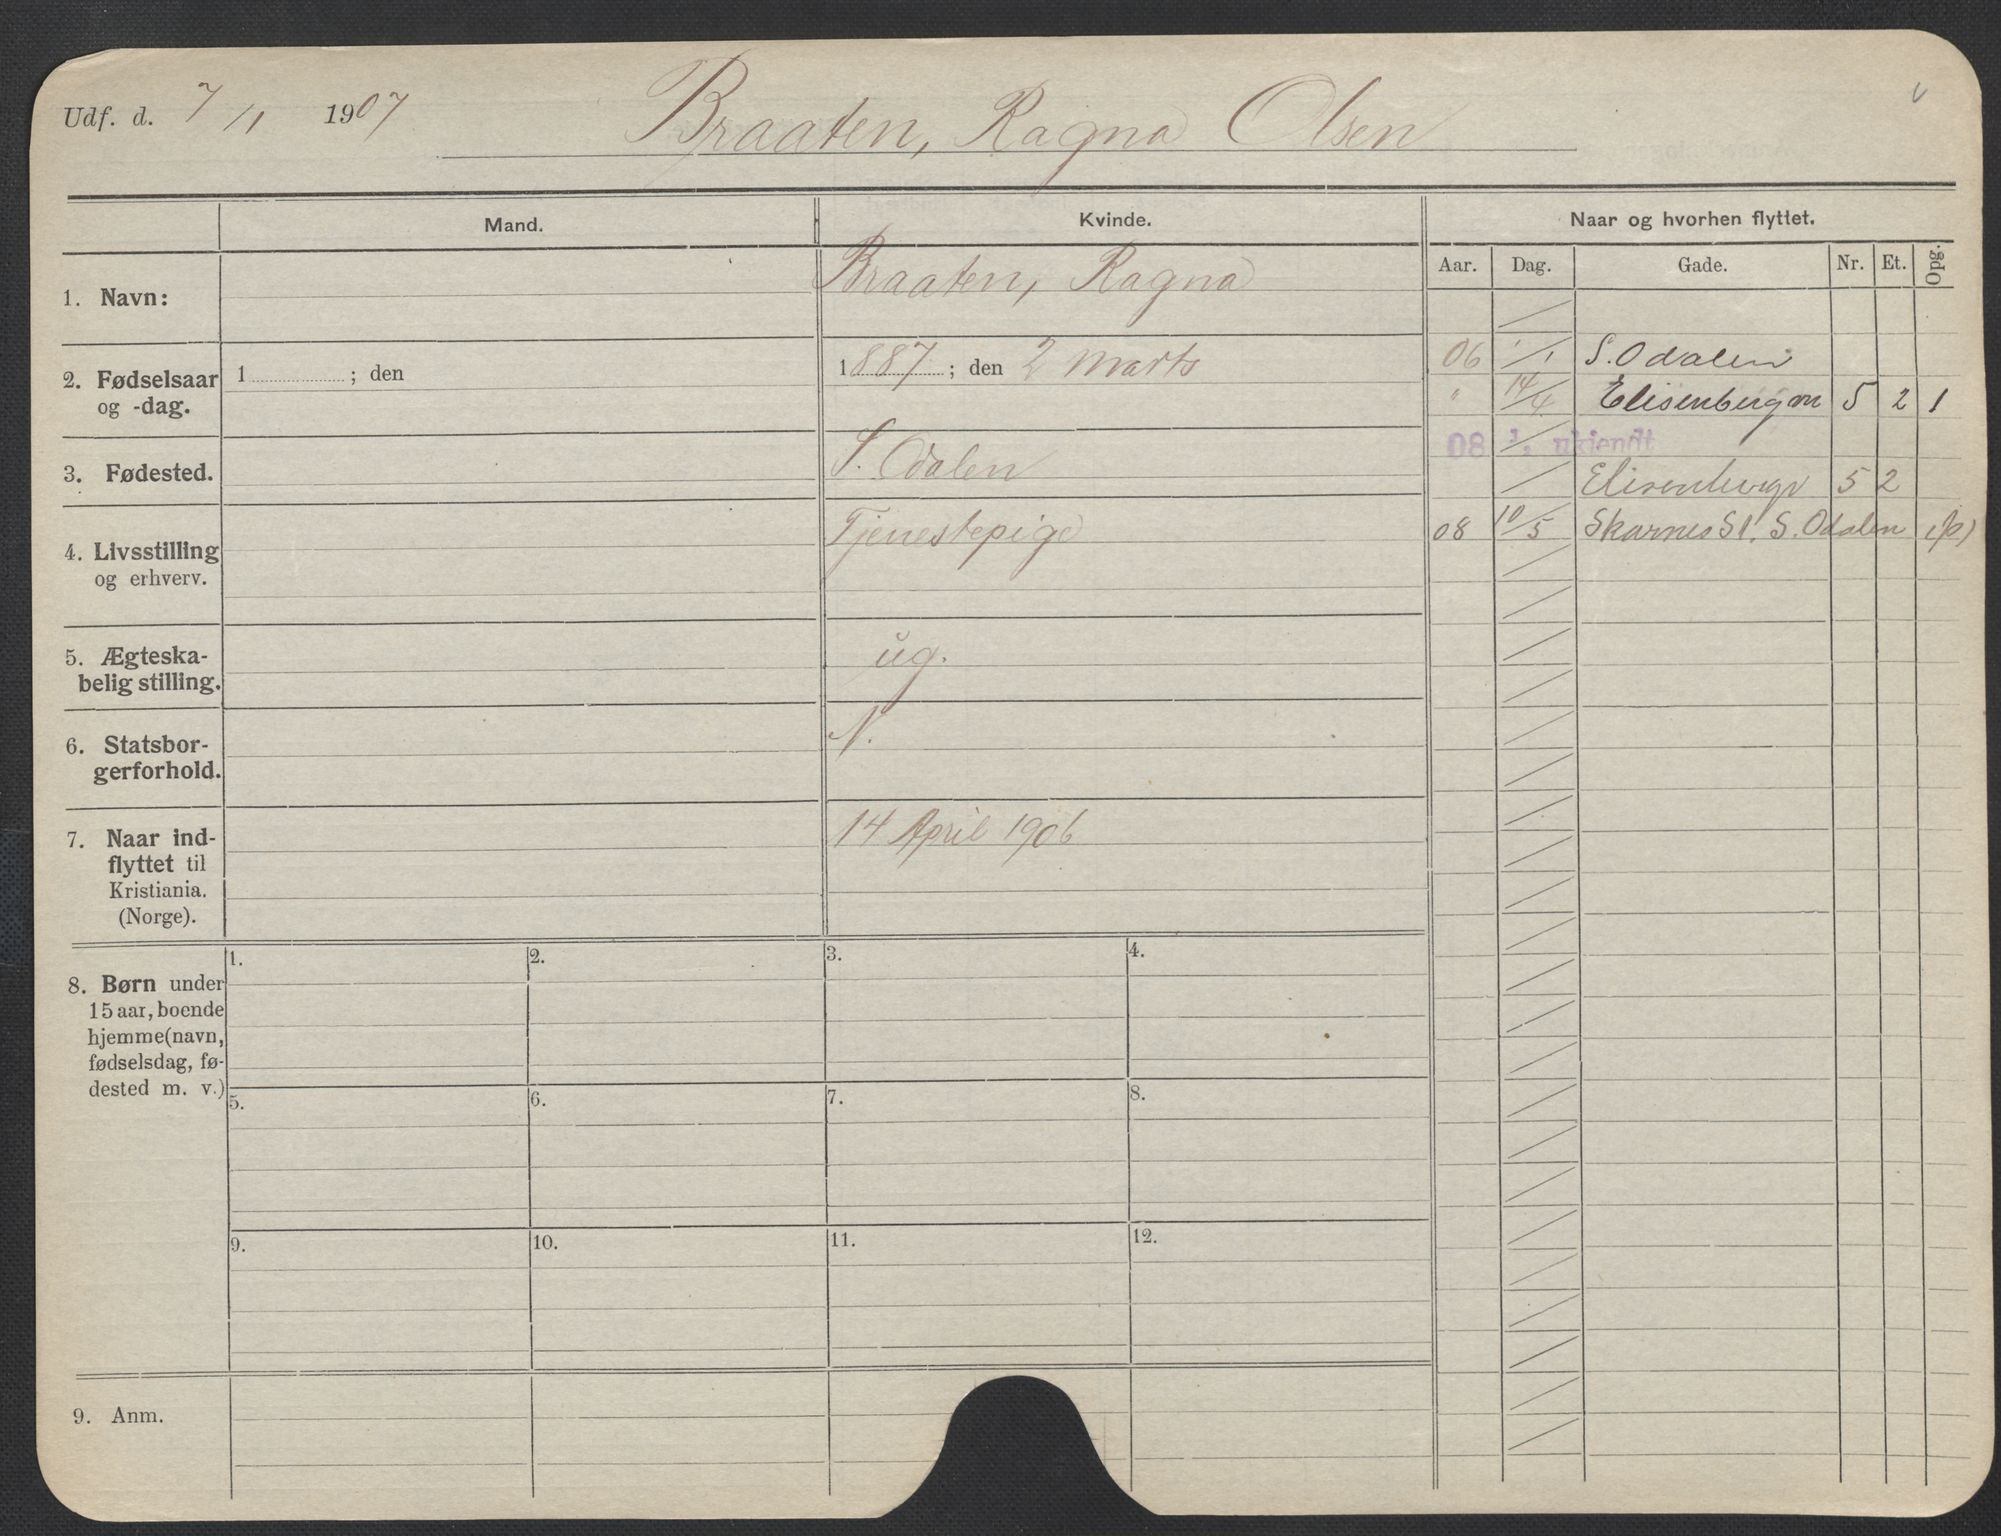 Udf. d. 7/1 1907 Braaten, Ragna Olsen
Mand. Kvinde. Naar og hvorhen flyttet.
Aar. Dag. Gade. Nr. Et. Opg.
1. Navn: Braaten, Ragna
2. Fødselsaar 1 ; den 1887 ; den 2 Marts
og -dag.
3. Fødested. S. Odalen
4. Livsstilling Tjenestepige
og erhverv.
5. Ægteska- ug.
belig stilling.
6. Statsbor- N.
gerforhold.
7. Naar ind- 14 April 1906
flyttet til
Kristiania.
(Norge).
06 1/1 S. Odalen
" 14/4 Elisenbergvn 5 2 1
08 ukjendt
Elisenbergv 5 2
08 10/5 Skarnes St. S. Odalen (p)
8. Børn under
15 aar, boende
hjemme (navn,
fødselsdag, fø-
dested m. v.)
1. 2. 3. 4.
5. 6. 7. 8.
9. 10. 11. 12.
9. Anm.